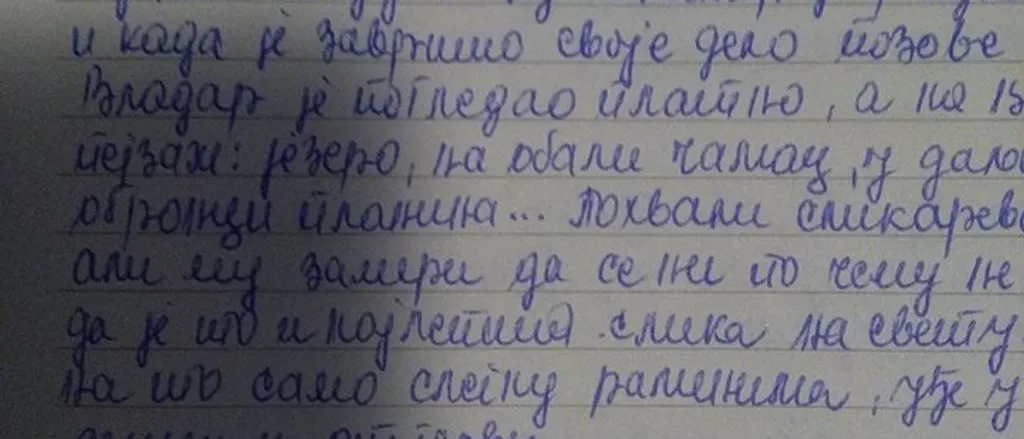 и када је завршио своје дело позове
Владар је погледао платно, а на
пејзаж: језеро, на обали чамац, у
обронци планина... Похвали
али му замери да се ни по чему
да је то и најлепша слика на свету
на то само слегну раменима, уђе у